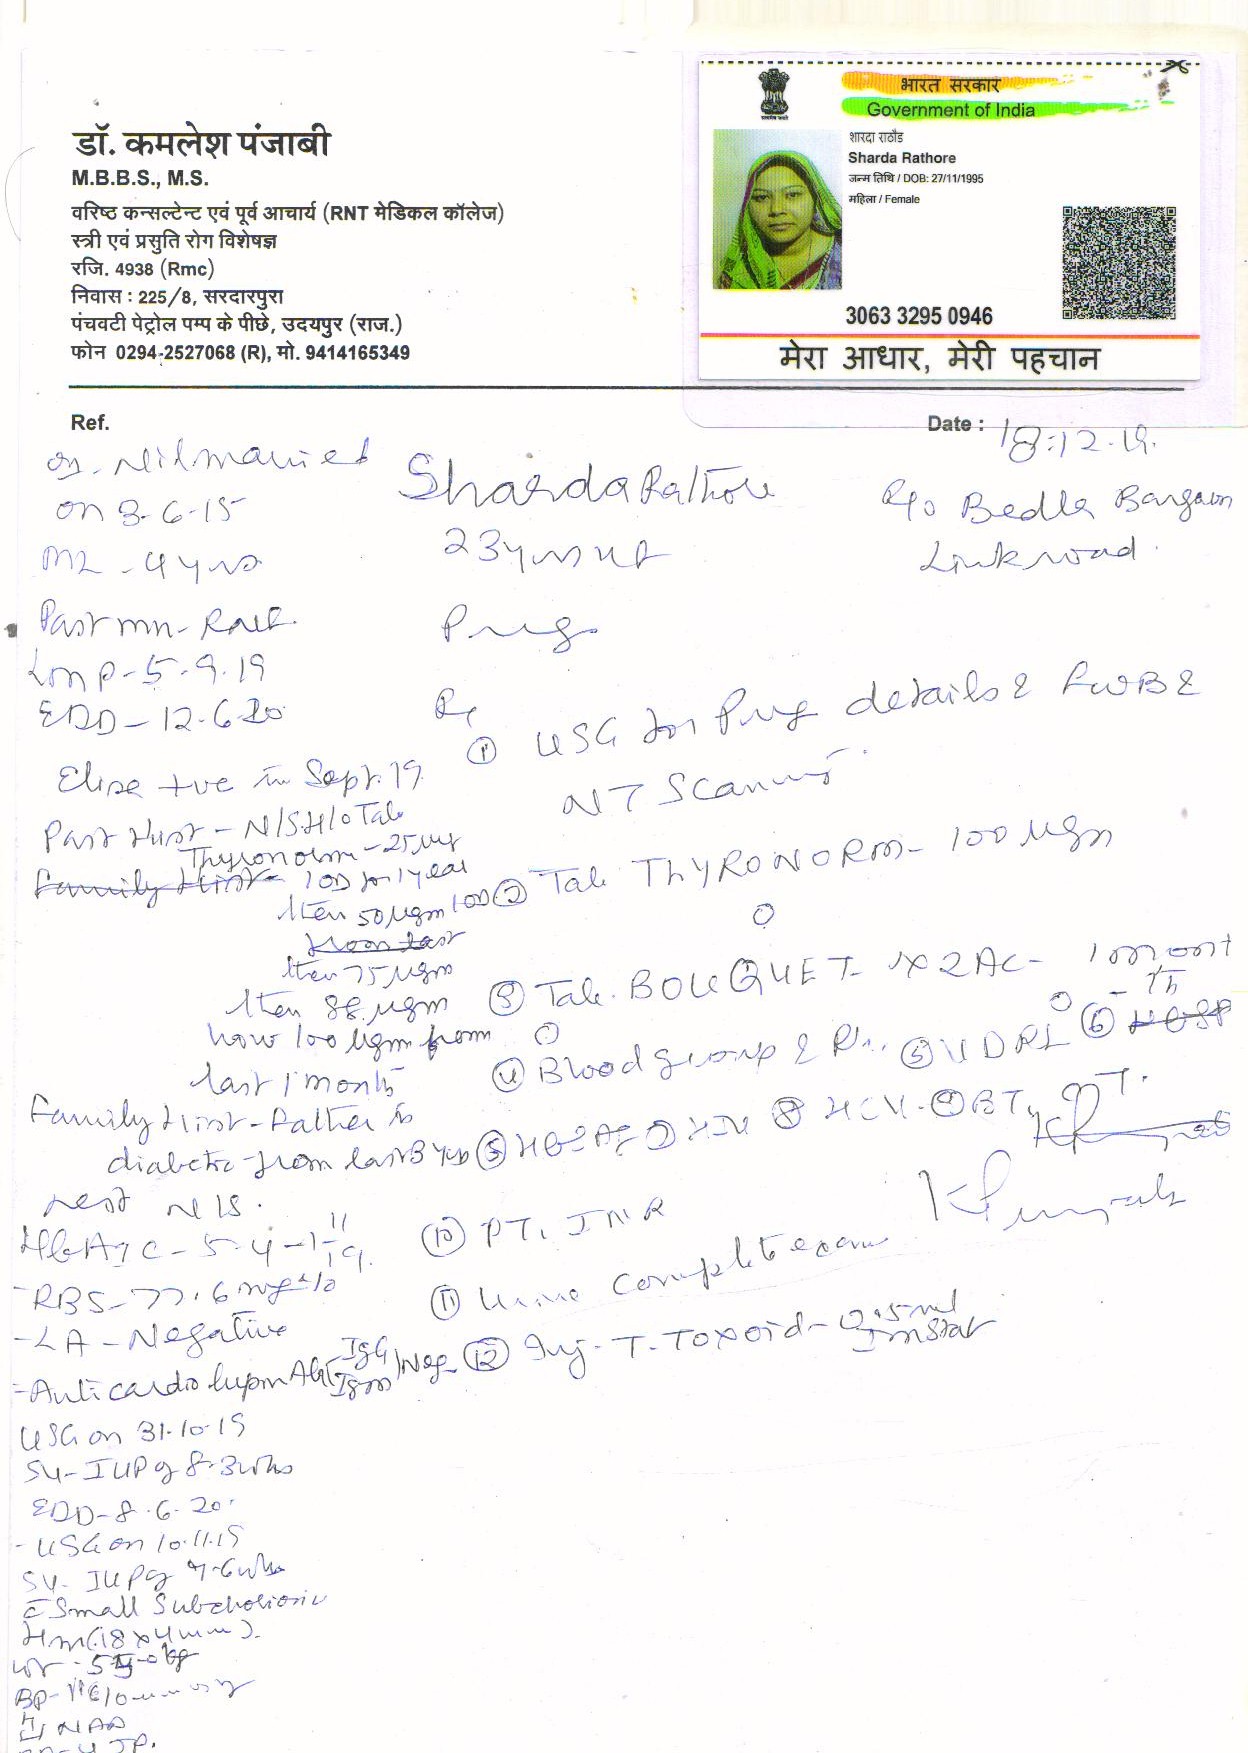 डॉ. कमलेश पंजाबी
M.B.B.S., M.S.
वरिष्ठ कन्सल्टेन्ट एवं पूर्व आचार्य (RNT मेडिकल कॉलेज)
स्त्री एवं प्रसुति रोग विशेषज्ञ
रजि. 4938 (Rmc)
निवास : 225/8, सरदारपुरा
पंचवटी पेट्रोल पम्प के पीछे, उदयपुर (राज.)
फोन 0294-2527068 (R), मो. 9414165349
भारत सरकार
Government of India
शारदा राठौड
Sharda Rathore
जन्म तिथि / DOB: 27/11/1995
महिला / Female
3063 3295 0946
मेरा आधार, मेरी पहचान
Ref.
Date : 18.12.19.
Nil married
on 3-6-15
ML - 4 yrs
Past mn -
LmP - 5.9.19
EDD - 12.6.20
Sharda Rathore
23yrs
R/o Bedla Bargaon
Link road.
Elisa +ve in Sept. 19
Past Hist - N/S. H/o Tab
Thyronorm - 25 µg
Family Hist - 1OD for 1 year
then 50 µgm 1OD
from last
then 75 µgm
then 88 µgm
now 100 µgm from
last 1 month
Family Hist - Father is
diabetic from last 3 yrs
rest N/S.
HbA1C - 5.4 -
- RBS - 77.6 mg%
- LA - Negative
- Anticardiolipin Ab (IgG IgM) Neg
USG on 31.10.19
EDD - 8.6.20
- USG on 10.11.19
c Small Subchorionic
Hm (18 x 4 mm).
NAD
Rx
① USG for Preg details & FWB &
NT Scanning
② Tab THYRONORM - 100 µgm
③ Tab. BOUQUET - 1x2 AC - 1 month
④ Blood group & Rh. ⑤ VDRL ⑥
⑤ HBSAg ⑦ HIV ⑧ HCV. ⑨ BT, CT.
⑩ PT, INR
⑪ Urine complete exam
⑫ Inj - T. Toxoid - 0.5 ml
Im Stat